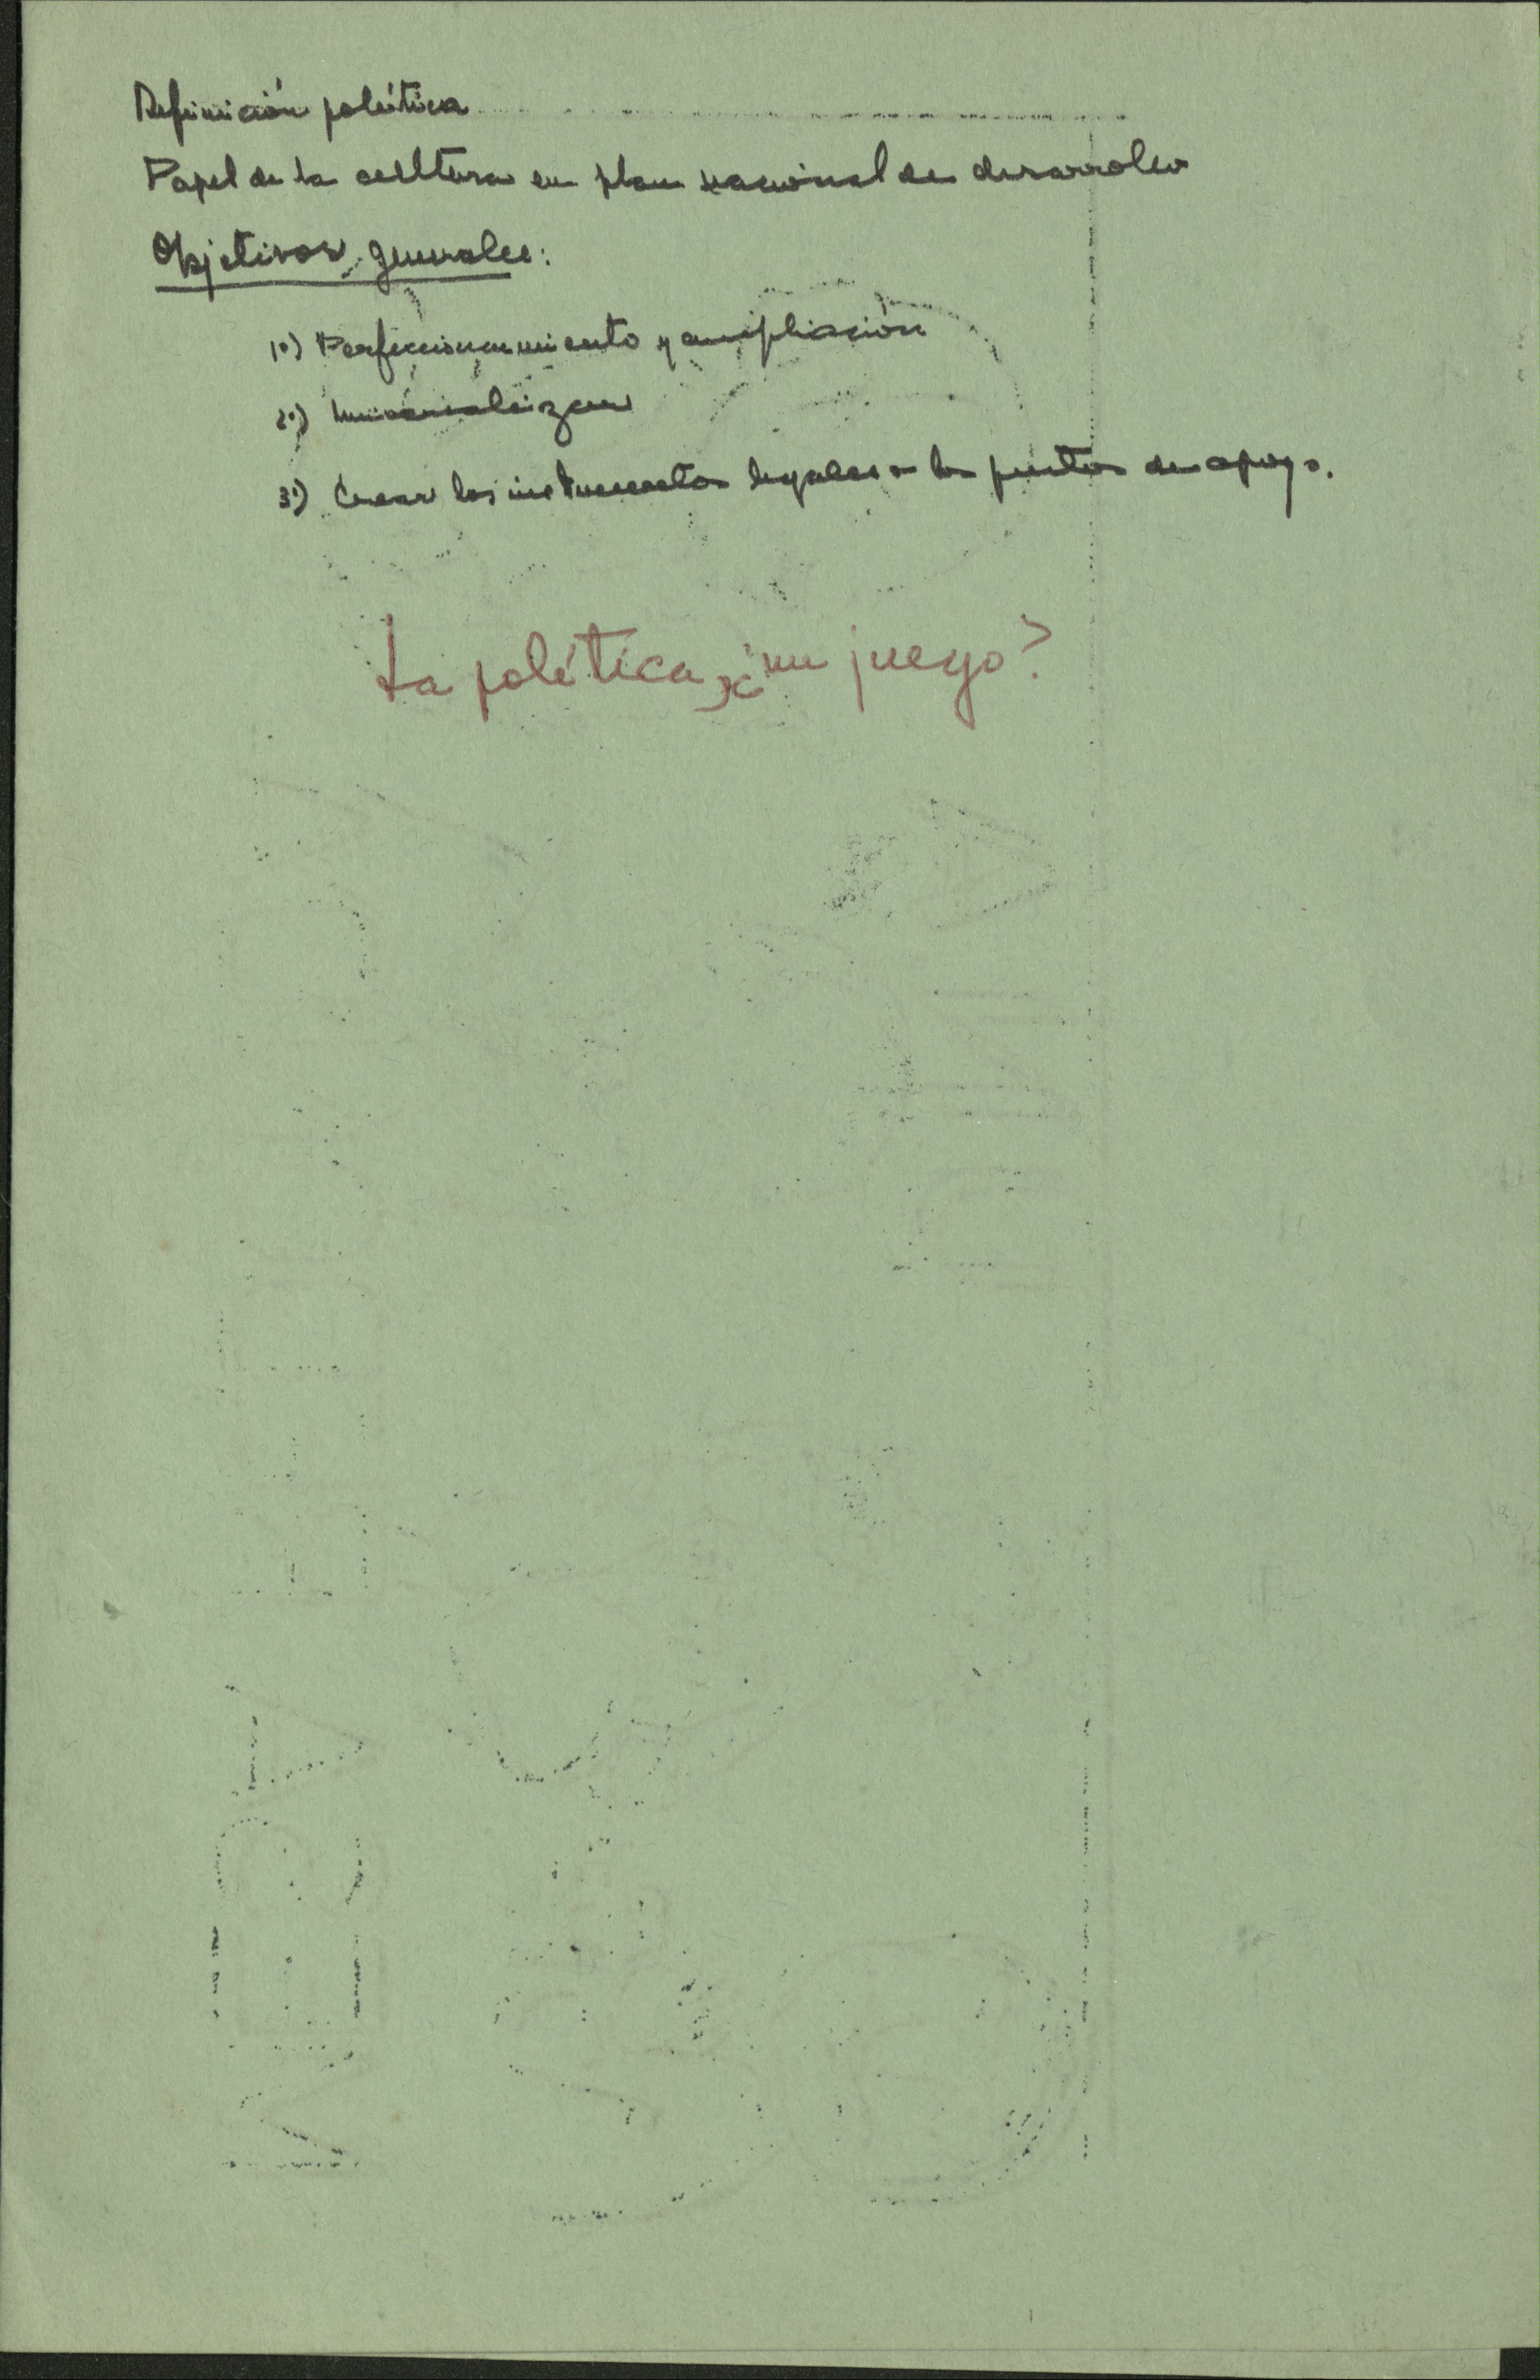 Definición política
Papel de la cultura en plan nacional de desarrollo
Objetivos generales:
1º) Perfeccionamiento y ampliación
2º) Universalizar
3º) Crear los instrumentos legales a los puntos de apoyo.
La política, ¿un juego?